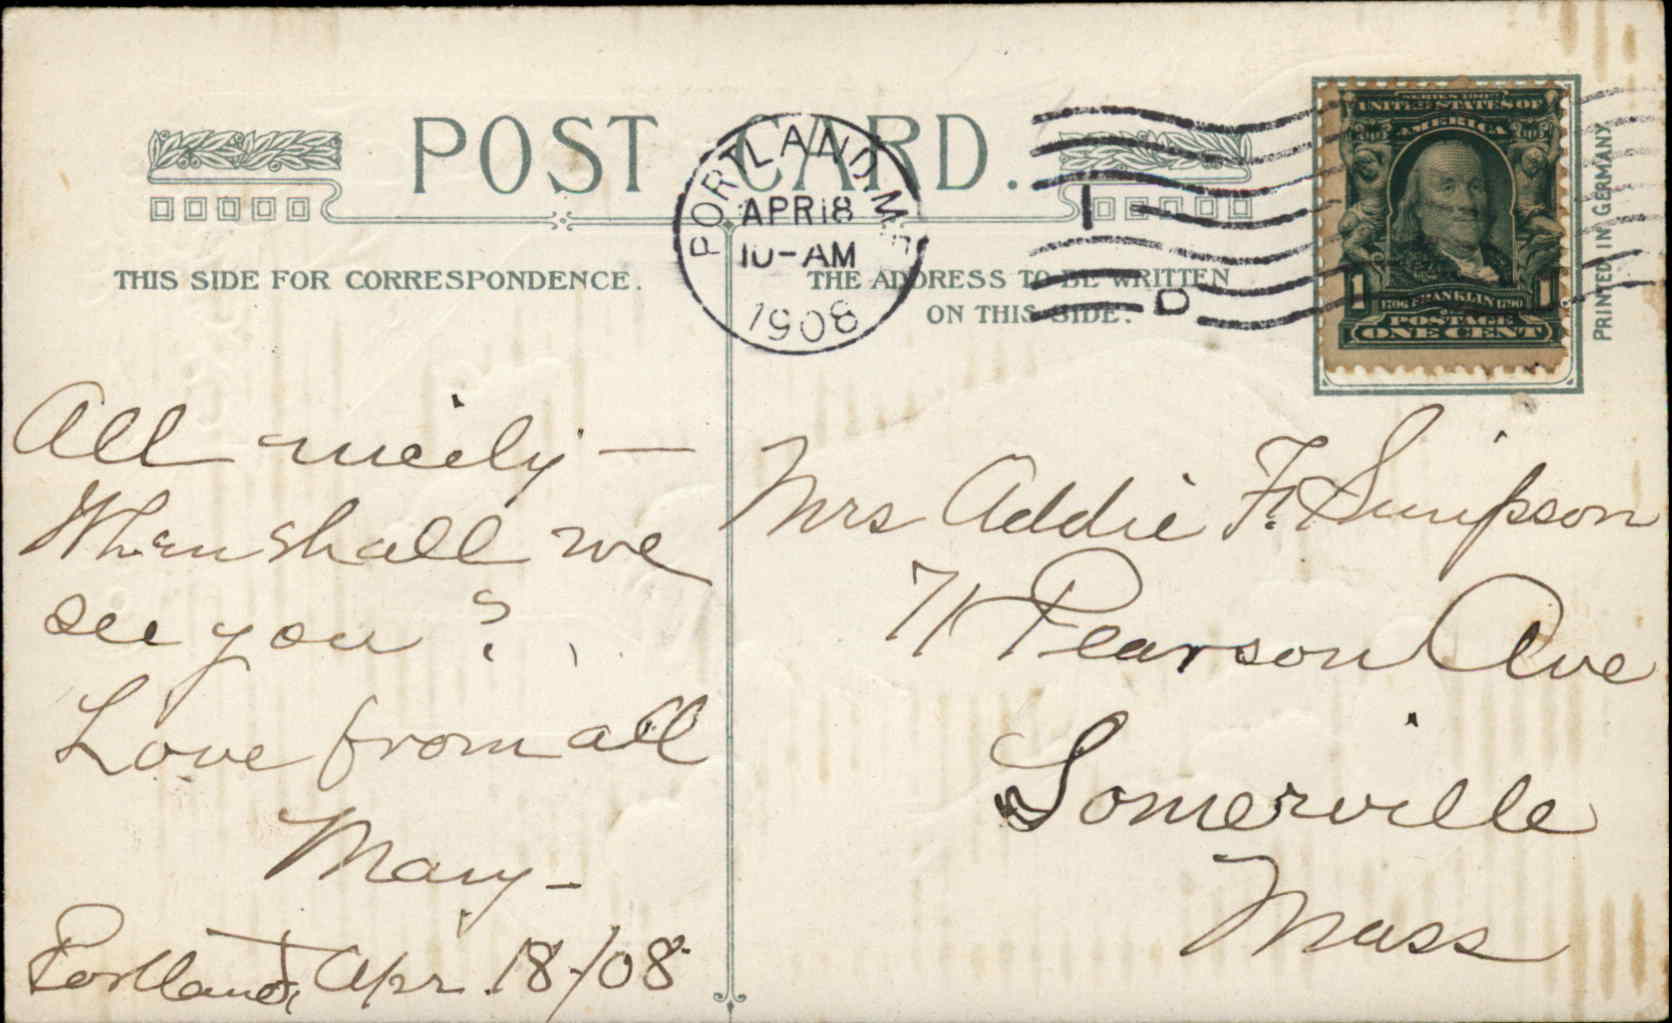 POST CARD.
THIS SIDE FOR CORRESPONDENCE.
THE ADDRESS TO BE WRITTEN
ON THIS SIDE.
PORTLAND, ME
APR 18
10-AM
1908
1 D
SERIES 1902
UNITED STATES OF
AMERICA
1706 FRANKLIN 1790
1 1
POSTAGE
ONE CENT
PRINTED IN GERMANY
All nicely —
When shall we
see you?
Love from all
Mary —
Portland, Apr. 18/08
Mrs Addie F. Simpson
71 Pearson Ave
Somerville
Mass